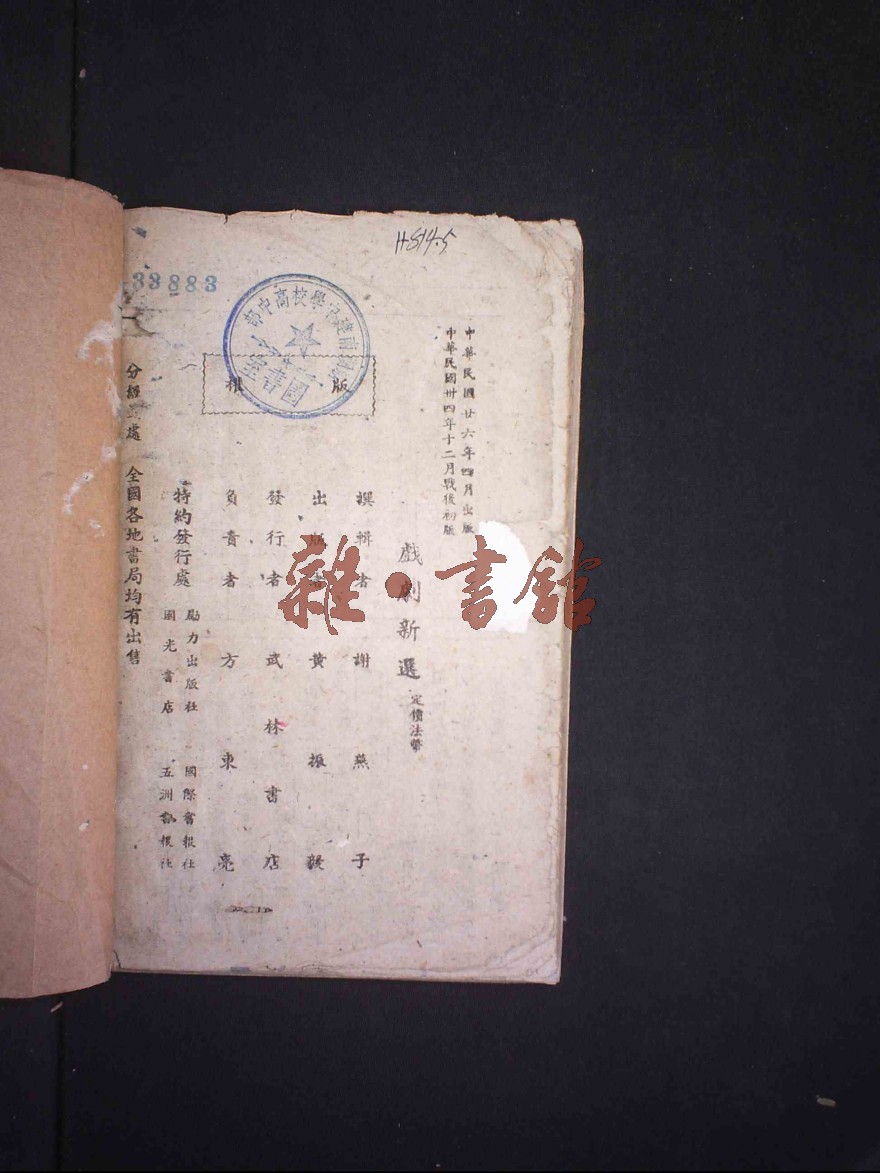 H814.5
33883
中華民國廿六年四月出版
中華民國卅四年十二月戰後初版
版權
戲劇新選 定價法幣
撰輯者 謝燕子
出版者 黃振
發行者 武林書店
負責者 方東亮
特約發行處
勵力出版社 國際書報社
國光書店 五洲書報社
全國各地書局均有出售
學校高中部
圖書室
雜·書館